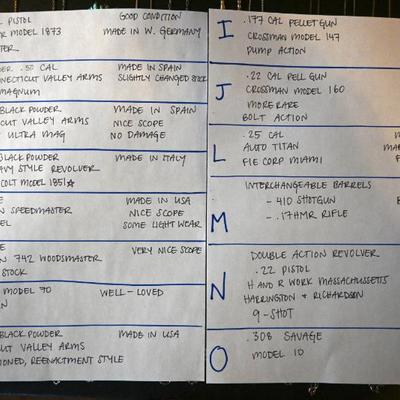 L PISTOL GOOD CONDITION
R MODEL 1873 MADE IN W. GERMANY
TER
DER .50 CAL MADE IN SPAIN
NECTICUT VALLEY ARMS SLIGHTLY CHANGED STOCK
MAGNUM
BLACK POWDER MADE IN SPAIN
CUT VALLEY ARMS NICE SCOPE
ULTRA MAG NO DAMAGE
BLACK POWDER MADE IN ITALY
AVY STYLE REVOLVER
COLT MODEL 1851☆
E MADE IN USA
N SPEEDMASTER NICE SCOPE
EL SOME LIGHT WEAR
E VERY NICE SCOPE
N 742 WOODSMASTER
STOCK
MODEL 70 WELL-LOVED
N
BLACK POWDER MADE IN USA
UT VALLEY ARMS
IONED, REENACTMENT STYLE
I
.177 CAL PELLET GUN
CROSSMAN MODEL 147
PUMP ACTION
J
.22 CAL PELL GUN
CROSSMAN MODEL 160
MORE RARE
BOLT ACTION
L
.25 CAL
AUTO TITAN MA
FIE CORP MIAMI F
M
INTERCHANGEABLE BARRELS
- 410 SHOTGUN
- .17HMR RIFLE
N
DOUBLE ACTION REVOLVER
.22 PISTOL
H AND R WORK MASSACHUSSETTS
HARRINGTON & RICHARDSON
9-SHOT
O
.308 SAVAGE
MODEL 10